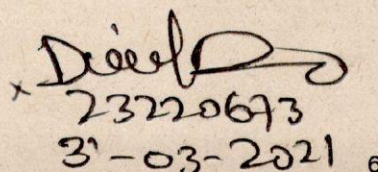 x
23220673
3'-03-2021 6